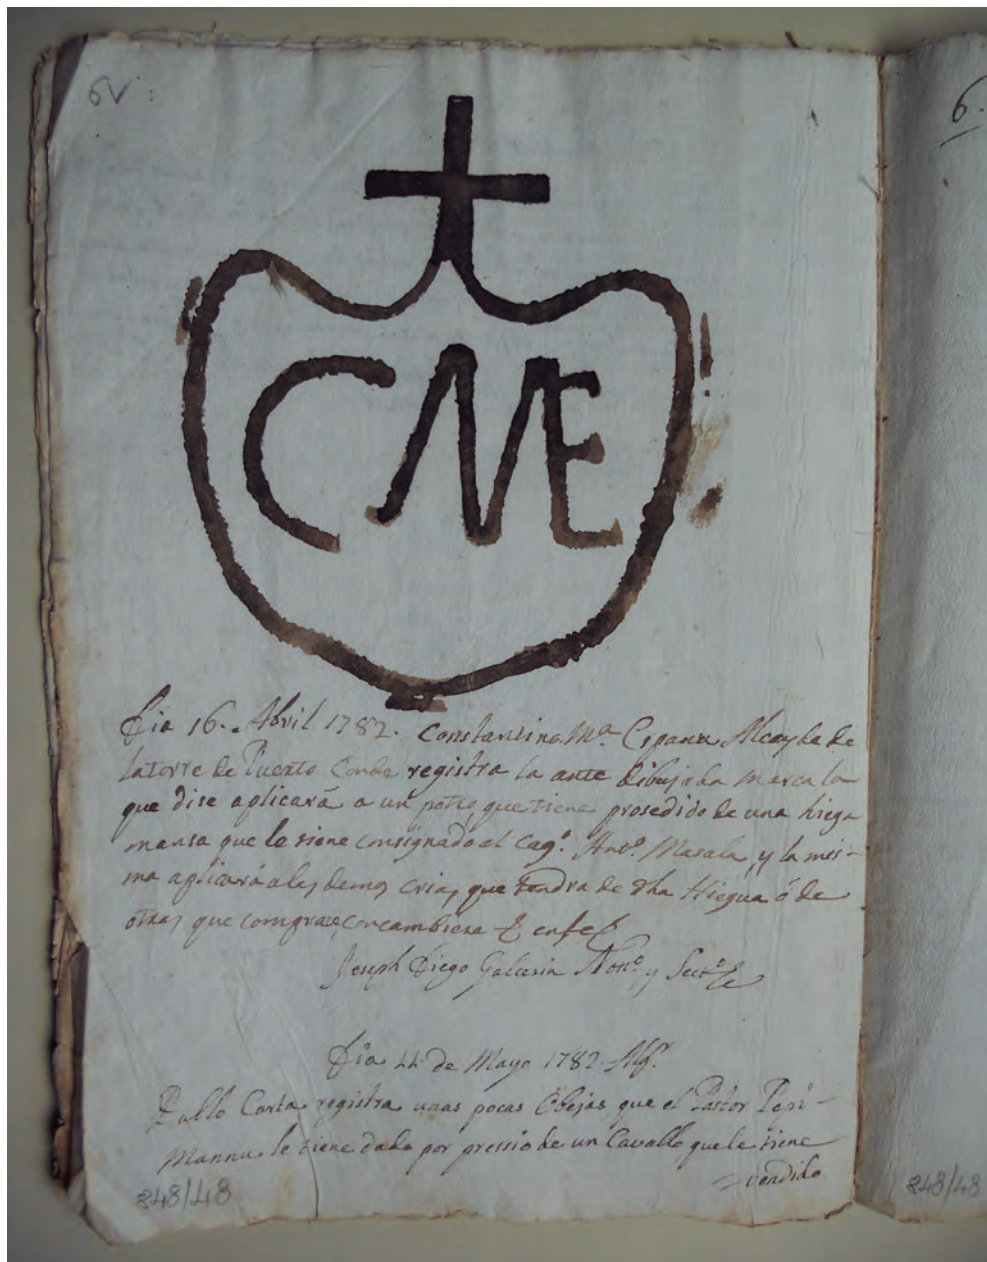 6V
6.
CME
Dia 16. Abril 1782. Constantino Mª. Cipana Alcayde de
la torre de Puerto Conde registra la ante dibujada marca la
que dise aplicará a un potro que tiene prosedido de una hiegua
mansa que le tiene consignado al Antº. Masala, y la mis-
ma aplicará a las demas crias que tendra de dha Hiegua ó de
otras que comprare, concambiera
Joseph Diego Galcerin Notº. y Secrº.
Dia 11 de Mayo 1782. Algʳ.
Pablo Carta registra unas pocas Obejas que el Pastor Pepi-
Mannu le tiene dado por pressio de un Cavallo que le tiene
vendido
848/48
848/48